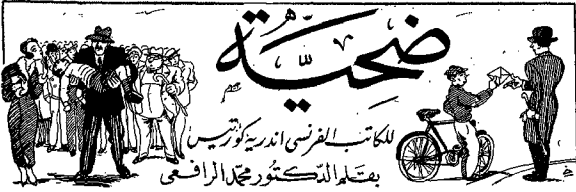 ضحية
للكاتب الفرنسى اندريه كورتيس
بقلم الدكتور محمد الرافعى